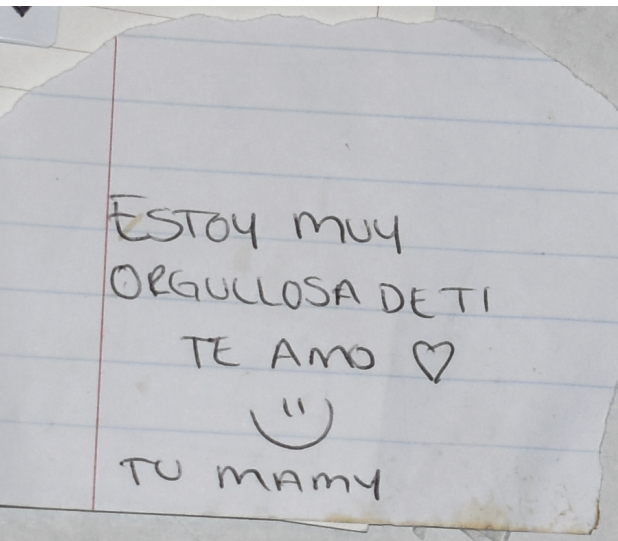 ESTOY MUY
ORGULLOSA DE TI
TE AMO ♡
TU MAMY